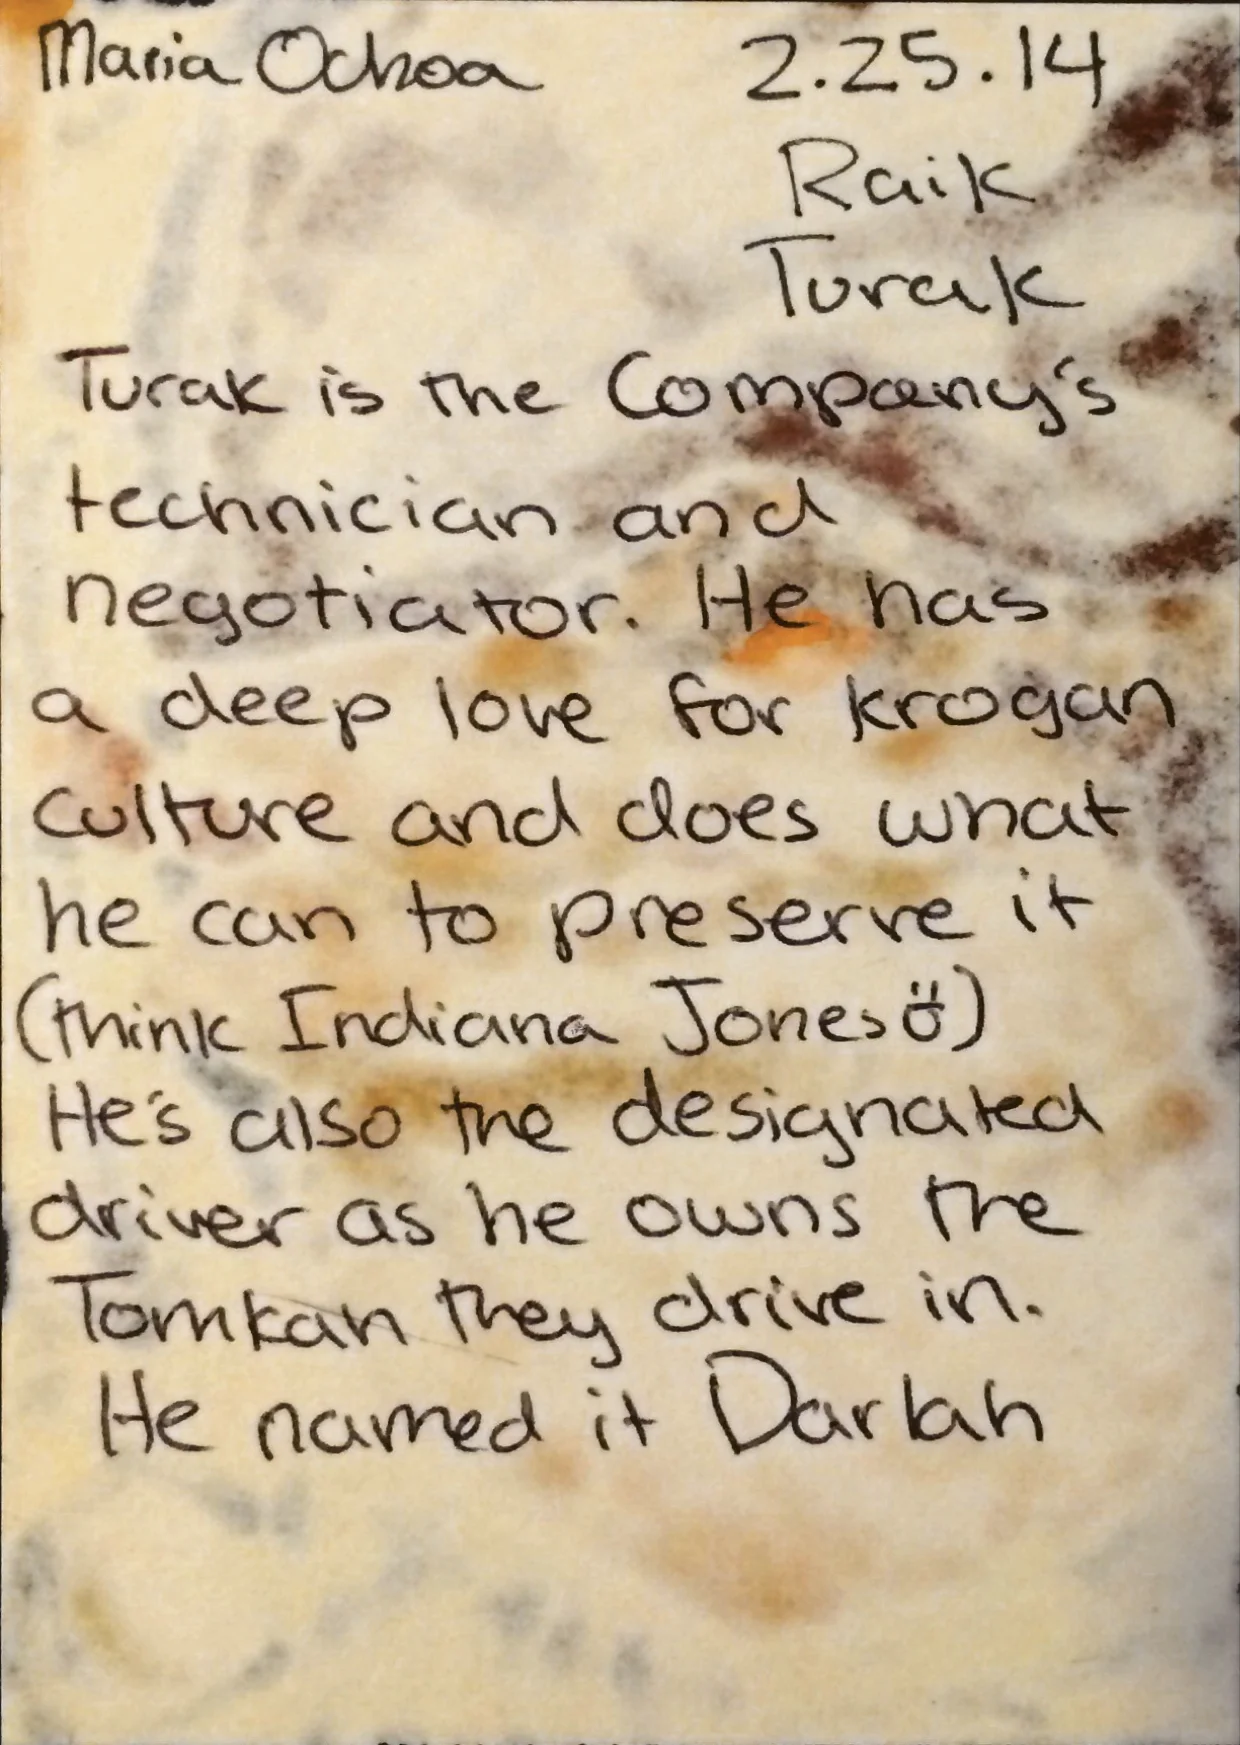 Maria Ochoa 2.25.14
Raik
Turak
Turak is the Company's
technician and
negotiator. He has
a deep love for krogan
culture and does what
he can to preserve it
(think Indiana Jones)
He's also the designated
driver as he owns the
Tomkah they drive in.
He named it Darlah